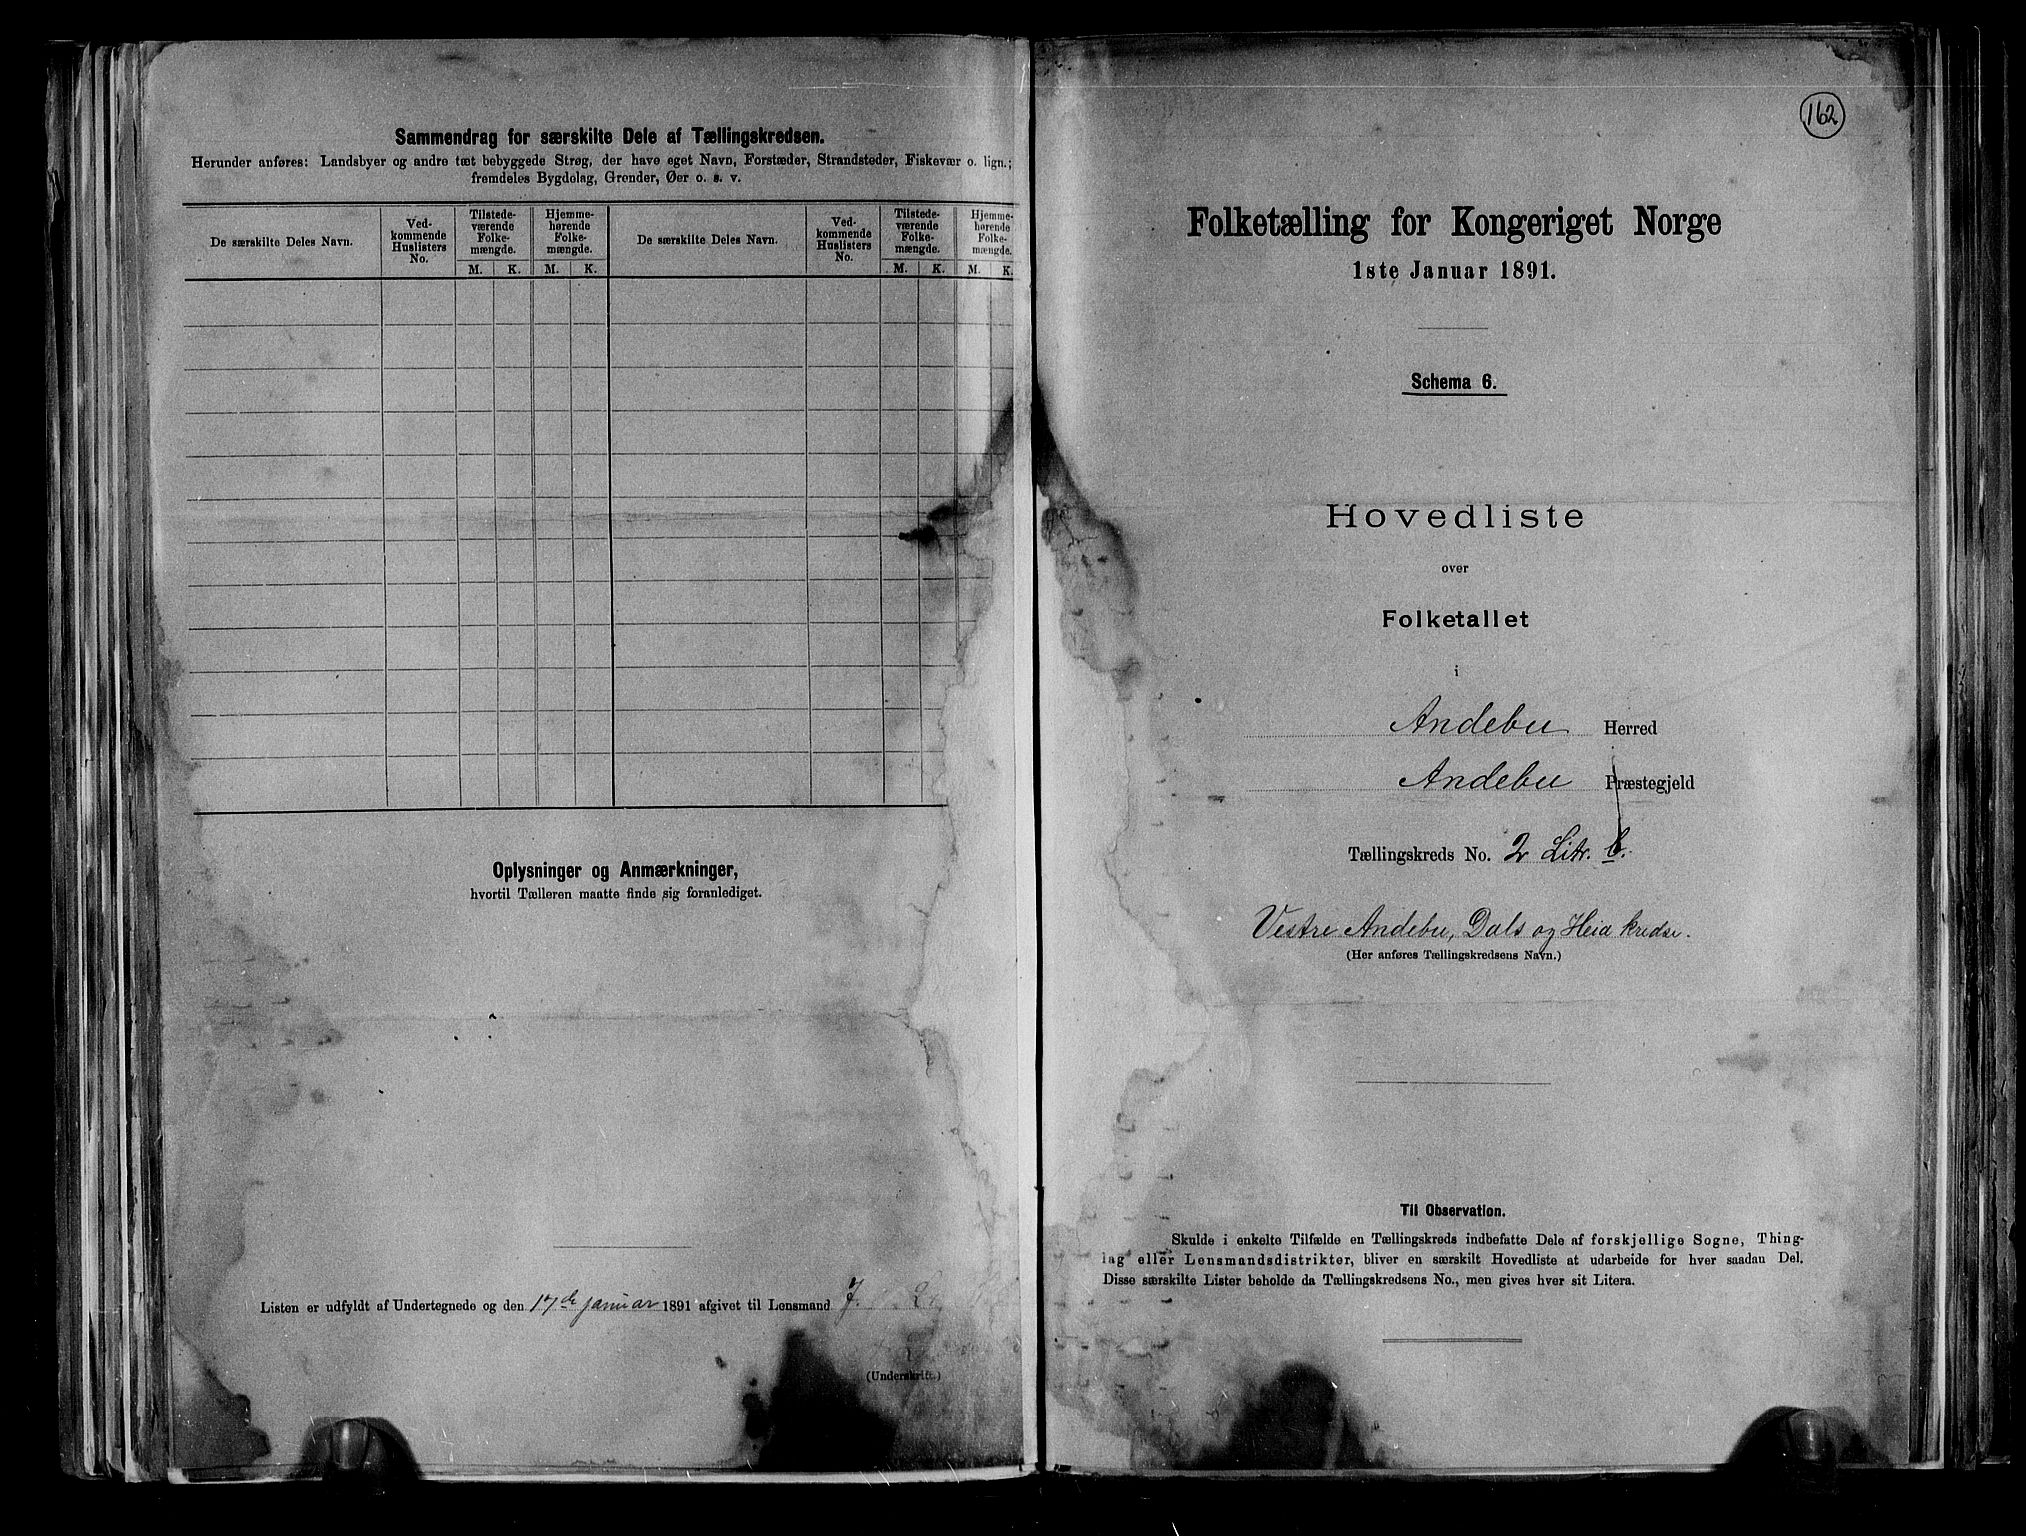 Sammendrag for særskilte Dele af Tællingskredsen.
Herunder anføres: Landsbyer og andre tæt bebyggede Strøg, der have eget Navn, Forstæder, Strandsteder, Fiskevær o. lign.;
fremdeles Bygdelag, Grender, Øer o. s. v.
De særskilte Deles Navn.
Ved-
kommende
Huslisters
No.
Tilstede-
værende
Folke-
mængde.
M. K.
Hjemme-
hørende
Folke-
mængde.
M. K.
De særskilte Deles Navn.
Ved-
kommende
Huslisters
No.
Tilstede-
værende
Folke-
mængde.
M. K.
Hjemme-
hørende
Folke-
mængde.
M. K.
Oplysninger og Anmærkninger,
hvortil Tælleren maatte finde sig foranlediget.
Listen er udfyldt af Undertegnede og den 17de januar 1891 afgivet til Lensmand J.
(Underskrift.)
162
Folketælling for Kongeriget Norge
1ste Januar 1891.
Schema 6.
Hovedliste
over
Folketallet
i
Andebu Herred
Andebu Præstegjeld
Tællingskreds No. 2 Litr. b.
Vestre Andebu, Dals og Heia kredse.
(Her anføres Tællingskredsens Navn.)
Til Observation.
Skulde i enkelte Tilfælde en Tællingskreds indbefatte Dele af forskjellige Sogne, Thing-
lag eller Lensmandsdistrikter, bliver en særskilt Hovedliste at udarbeide for hver saadan Del.
Disse særskilte Lister beholde da Tællingskredsens No., men gives hver sit Litera.